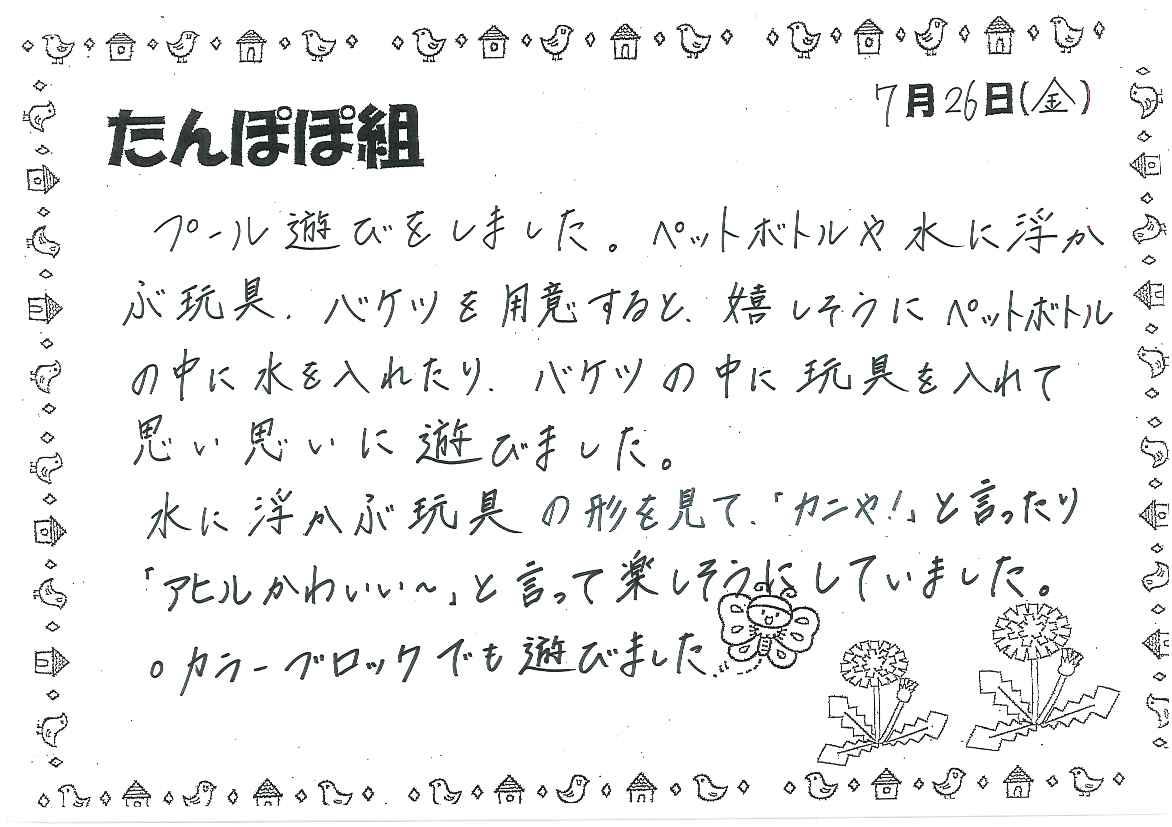 7月26日(金)
たんぽぽ組
プール遊びをしました。ペットボトルや水に浮か
ぶ玩具、バケツを用意すると、嬉しそうにペットボトル
の中に水を入れたり、バケツの中に玩具を入れて
思い思いに遊びました。
水に浮かぶ玩具の形を見て、「カニや!」と言ったり
「アヒルかわいい～」と言って楽しそうにしていました。
○カラーブロックでも遊びました。